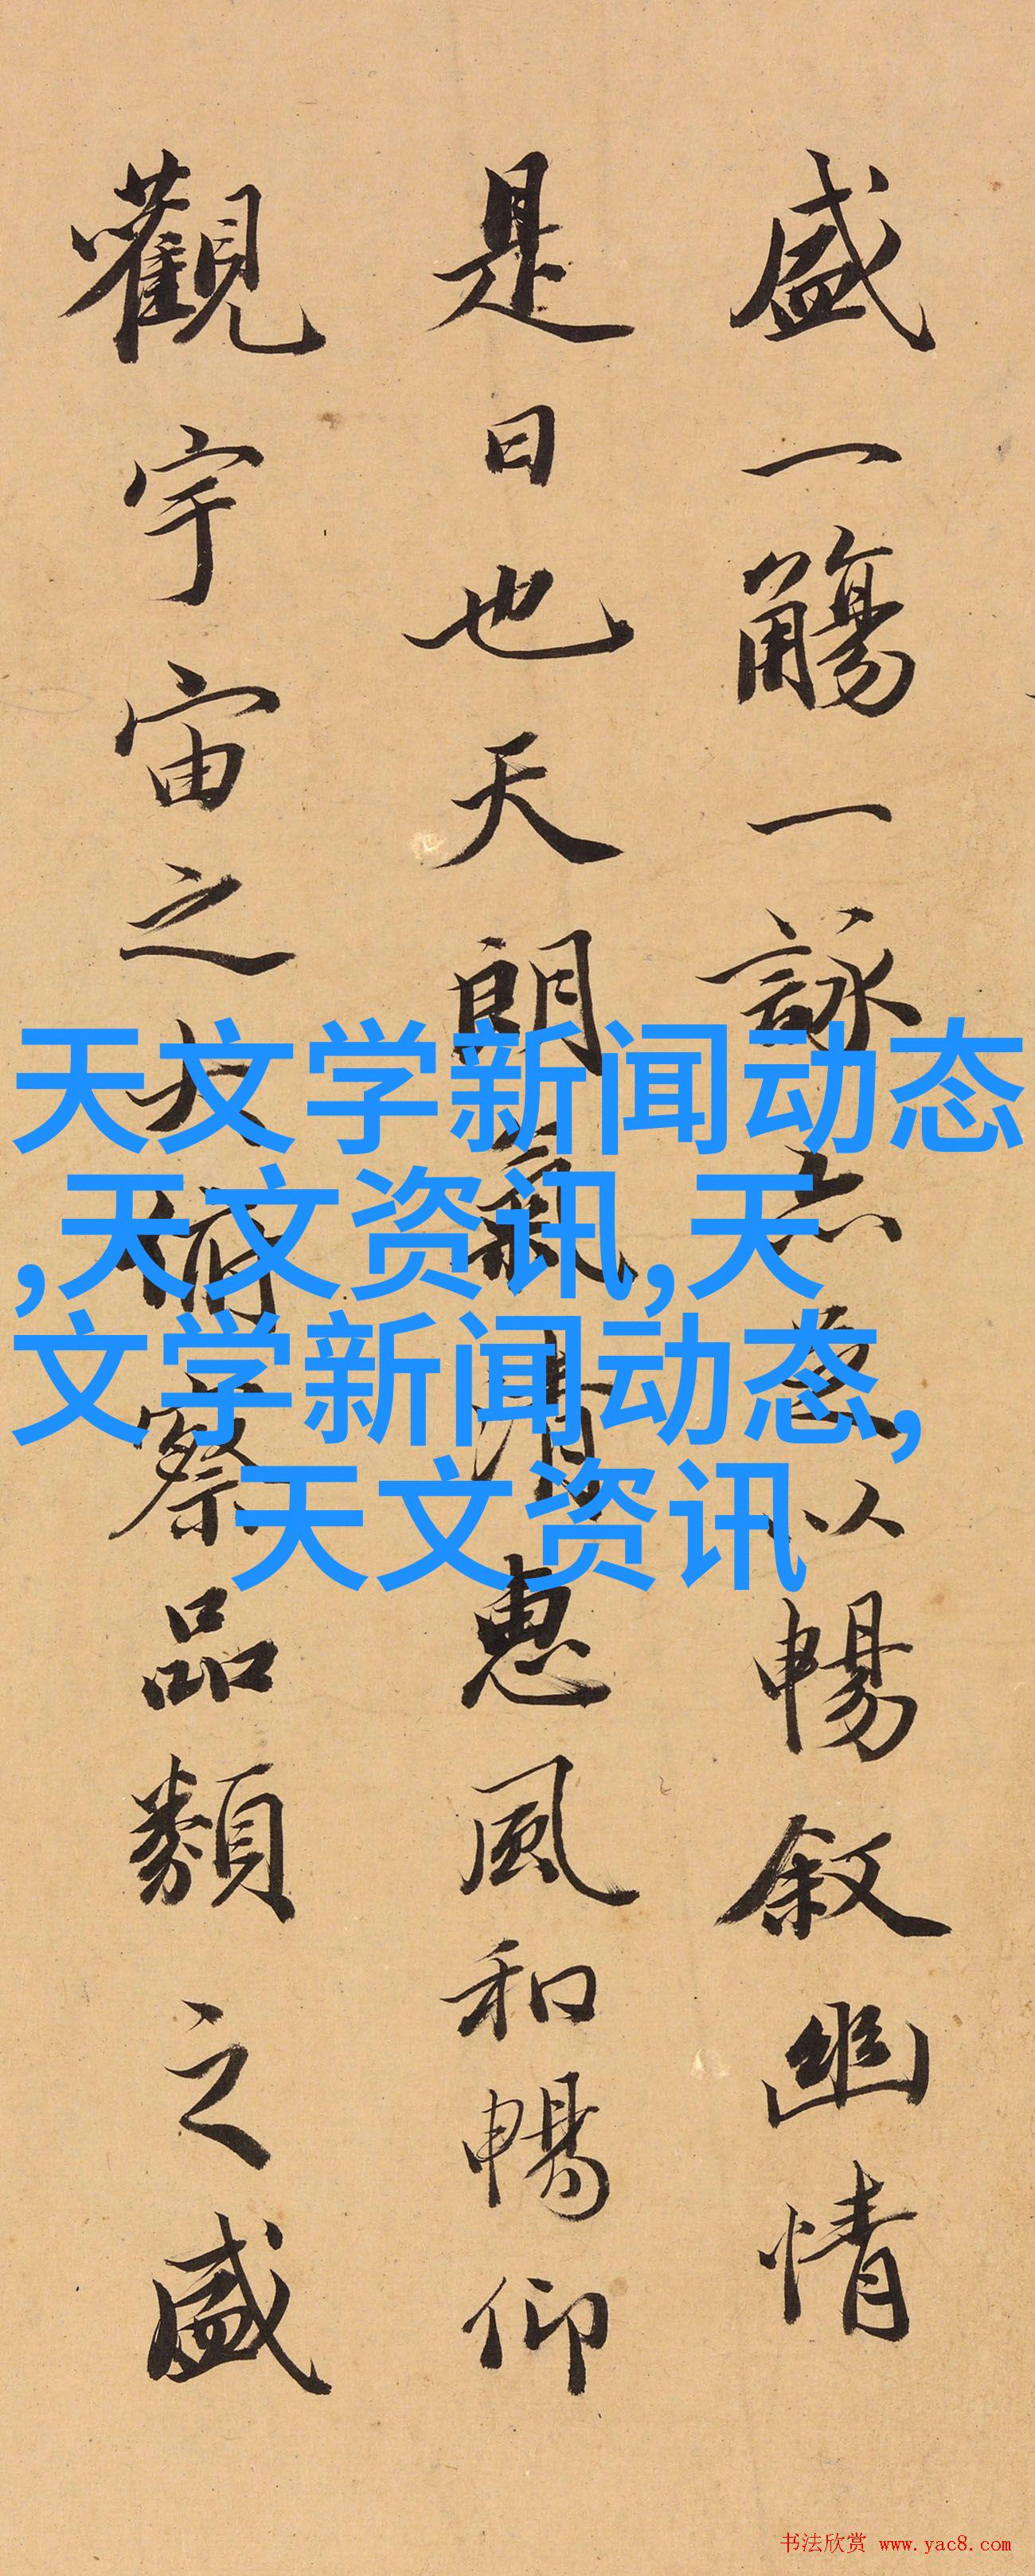 盛一觴一詠亦足以暢叙幽情
是日也天朗氣清惠風和暢仰
觀宇宙之大俯察品類之盛
天文学新闻动态
,天文资讯,天
文学新闻动态,
天文资讯
书法欣赏 www.yac8.com